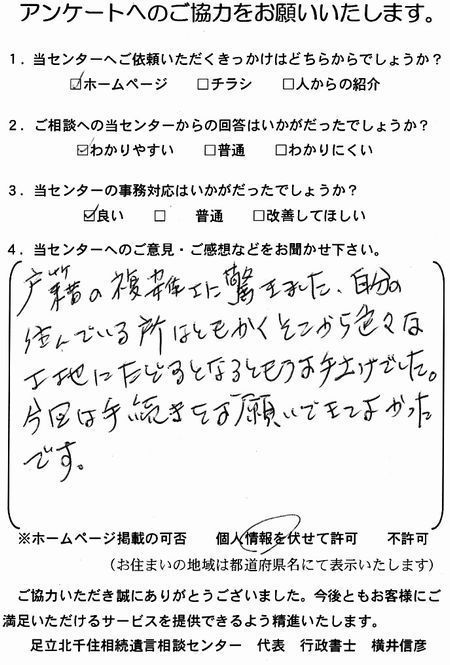 アンケートへのご協力をお願いいたします。
1．当センターへご依頼いただくきっかけはどちらからでしょうか？
☑ホームページ　□チラシ　□人からの紹介
2．ご相談への当センターからの回答はいかがだったでしょうか？
☑わかりやすい　□普通　□わかりにくい
3．当センターの事務対応はいかがだったでしょうか？
☑良い　□　普通　□改善してほしい
4．当センターへのご意見・ご感想などをお聞かせ下さい。
戸籍の複雑さに驚きました、自分の
住んでいる所はともかくそこから色々な
土地にたどるとなるともうお手上げでした。
今回は手続きをお願いできてよかった
です。
※ホームページ掲載の可否　個人情報を伏せて許可　不許可
（お住まいの地域は都道府県名にて表示いたします）
ご協力いただき誠にありがとうございました。今後ともお客様にご
満足いただけるサービスを提供できるよう精進いたします。
足立北千住相続遺言相談センター　代表　行政書士　横井信彦